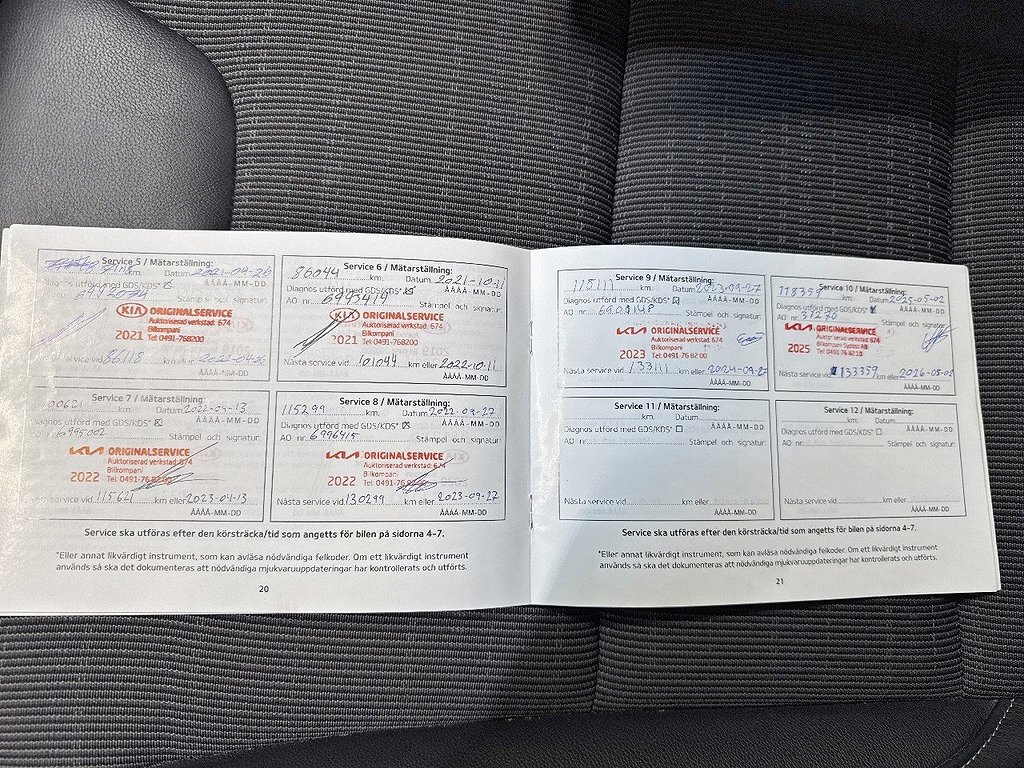 Service 5 / Mätarställning:
km. Datum 2021-04-26
Diagnos utförd med GDS/KDS* ☒ ÅÅÅÅ-MM-DD
Stämpel och signatur:
KIA ORIGINALSERVICE
Auktoriserad verkstad: 674
2021 Bilkompani
Tel: 0491-768200
Nästa service vid 86118 km eller 2022-04-26
ÅÅÅÅ-MM-DD
Service 6 / Mätarställning:
86044 km. Datum 2021-10-11
Diagnos utförd med GDS/KDS* ☒ ÅÅÅÅ-MM-DD
AO nr. 6993419 Stämpel och signatur:
KIA ORIGINALSERVICE
Auktoriserad verkstad: 674
2021 Bilkompani
Tel: 0491-768200
Nästa service vid 101044 km eller 2022-10-11
ÅÅÅÅ-MM-DD
Service 7 / Mätarställning:
100621 km. Datum 2022-04-13
Diagnos utförd med GDS/KDS* ☒ ÅÅÅÅ-MM-DD
6995002 Stämpel och signatur:
KIA ORIGINALSERVICE
Auktoriserad verkstad: 674
Bilkompani
2022 Tel: 0491-76
Nästa service vid 115621 km eller 2023-04-13
ÅÅÅÅ-MM-DD
Service 8 / Mätarställning:
115299 km. Datum 2022-09-27
Diagnos utförd med GDS/KDS* ☒ ÅÅÅÅ-MM-DD
AO nr. 6996415 Stämpel och signatur:
KIA ORIGINALSERVICE
Auktoriserad verkstad: 674
Bilkompani
2022 Tel: 0491-76
Nästa service vid 130299 km eller 2023-09-27
ÅÅÅÅ-MM-DD
Service ska utföras efter den körsträcka/tid som angetts för bilen på sidorna 4-7.
*Eller annat likvärdigt instrument, som kan avläsa nödvändiga felkoder. Om ett likvärdigt instrument
används så ska det dokumenteras att nödvändiga mjukvaruuppdateringar har kontrollerats och utförts.
20
Service 9 / Mätarställning:
118111 km. Datum 2023-09-27
Diagnos utförd med GDS/KDS* ☑ ÅÅÅÅ-MM-DD
AO nr. Stämpel och signatur:
KIA ORIGINALSERVICE
Auktoriserad verkstad: 674
Bilkompani
2023 Tel: 0491-76 82 00
Nästa service vid 133111 km eller 2024-09-27
ÅÅÅÅ-MM-DD
Service 10 / Mätarställning:
118359 km. Datum 2025-05-02
Diagnos utförd med GDS/KDS* ÅÅÅÅ-MM-DD
AO nr. 37270 Stämpel och signatur:
KIA ORIGINALSERVICE
Auktoriserad verkstad 674
Bilkompani Sydost AB
2025 Tel: 0491-76 82 10
Nästa service vid 133359 km eller 2026-05-02
ÅÅÅÅ-MM-DD
Service 11 / Mätarställning:
km. Datum
Diagnos utförd med GDS/KDS* ☐ ÅÅÅÅ-MM-DD
AO nr. Stämpel och signatur:
Nästa service vid km eller
ÅÅÅÅ-MM-DD
Service 12 / Mätarställning:
km. Datum
Diagnos utförd med GDS/KDS* ☐ ÅÅÅÅ-MM-DD
AO nr. Stämpel och signatur:
Nästa service vid km eller
ÅÅÅÅ-MM-DD
Service ska utföras efter den körsträcka/tid som angetts för bilen på sidorna 4-7.
*Eller annat likvärdigt instrument, som kan avläsa nödvändiga felkoder. Om ett likvärdigt instrument
används så ska det dokumenteras att nödvändiga mjukvaruuppdateringar har kontrollerats och utförts.
21